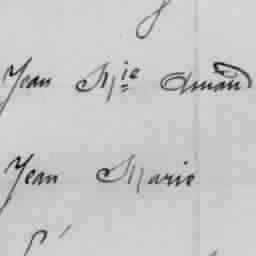 Jean M^ie Amand
Jean Marie